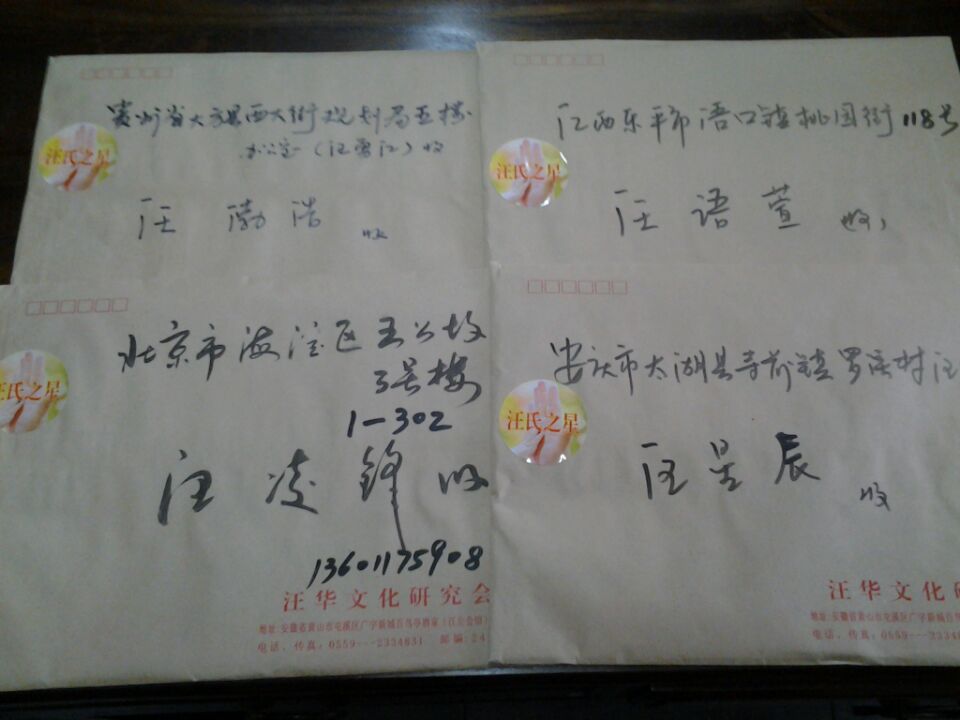 贵州省大方县西大街规划局五楼
办公室（汪贵江）收
汪氏之星
汪 渤 浩 收
江西乐平市浯口镇桃园街118号
汪氏之星
汪 语 萱 收
北京市海淀区五公坟
3号楼
1-302
汪氏之星
汪 凌 锋 收
13601175908
汪华文化研究会
地址:安徽省黄山市屯溪区广宇新城百鸟亭酒家（江左会馆）
电话、传真:0559---2334631 邮编:24
安庆市太湖县寺前镇罗溪村汪
汪氏之星
汪 昱 辰 收
汪华文化研
地址:安徽省黄山市屯溪区广宇新城百鸟
电话、传真:0559---23346